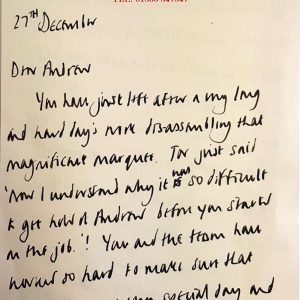 27TH December
Dear Andrew
You have just left after a very long
and hard day's work disassembling that
magnificent marquee. Tor just said
'Now I understand why it was so difficult
to get hold of Andrew before you started
on the job.'! You and the team have
worked so hard to make sure that
special day and